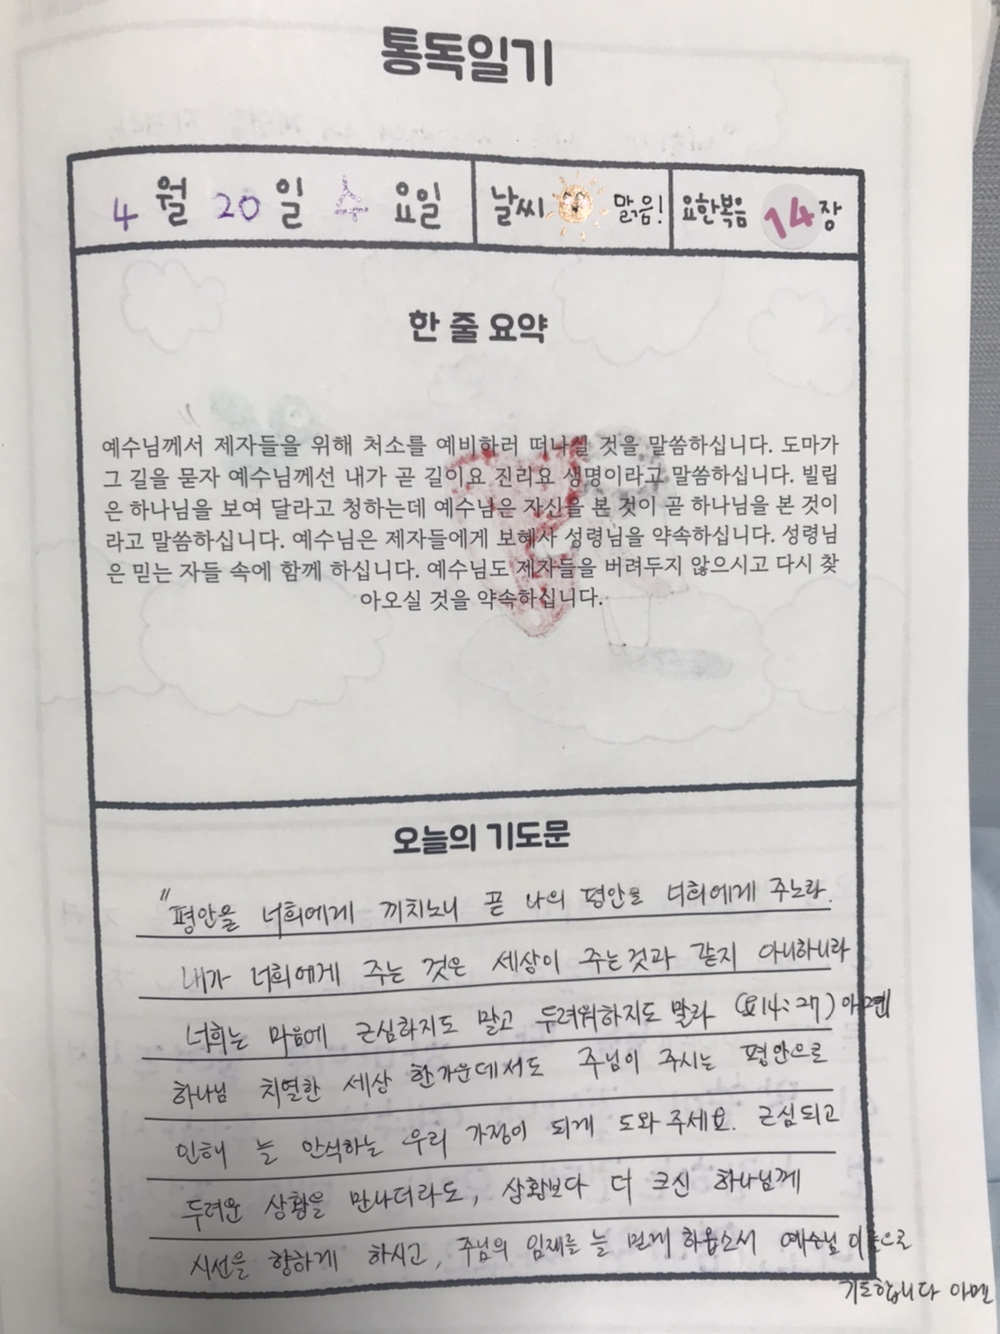 통독일기
4월 20일 수요일 날씨 맑음! 요한복음 14장
한 줄 요약
예수님께서 제자들을 위해 처소를 예비하러 떠나실 것을 말씀하십니다. 도마가
그 길을 묻자 예수님께선 내가 곧 길이요 진리요 생명이라고 말씀하십니다. 빌립
은 하나님을 보여 달라고 청하는데 예수님은 자신을 본 것이 곧 하나님을 본 것이
라고 말씀하십니다. 예수님은 제자들에게 보혜사 성령님을 약속하십니다. 성령님
은 믿는 자들 속에 함께 하십니다. 예수님도 제자들을 버려두지 않으시고 다시 찾
아오실 것을 약속하십니다.
오늘의 기도문
"평안을 너희에게 끼치노니 곧 나의 평안을 너희에게 주노라.
내가 너희에게 주는 것은 세상이 주는것과 같지 아니하니라
너희는 마음에 근심하지도 말고 두려워하지도 말라 (요14:27)
하나님 치열한 세상 한가운데서도 주님이 주시는 평안으로
인해 늘 안식하는 우리 가정이 되게 도와주세요. 근심되고
두려운 상황을 만나더라도, 상황보다 더 크신 하나님께
시선을 향하게 하시고, 주님의 임재를 늘 하옵소서 예수님 이름으로
기도합니다 아멘